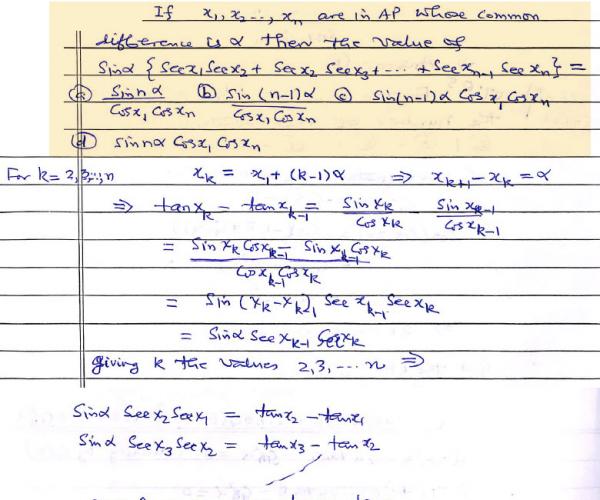 If x₁, x₂ ..., xₙ are in AP whose common
difference is α then the value of
Sinα {Secx₁Secx₂ + Secx₂ Secx₃ + ... + Secxₙ₋₁ Secxₙ} =
(a) Sinnα / Cosx₁Cosxₙ (b) Sin(n-1)α / Cosx₁Cosxₙ (c) Sin(n-1)α Cosx₁Cosxₙ
(d) sinnα Cosx₁Cosxₙ
For k=2,3,..,n xₖ = x₁+(k-1)α ⇒ xₖ₊₁-xₖ=α
⇒ tanxₖ - tanxₖ₋₁ = Sinxₖ / Cosxₖ - Sinxₖ₋₁ / Cosxₖ₋₁
= Sinxₖ Cosxₖ₋₁ - Sinxₖ₋₁ Cosxₖ / Cosxₖ₋₁Cosxₖ
= Sin(xₖ-xₖ₋₁) Secxₖ₋₁ Secxₖ
= Sinα Secxₖ₋₁ Secxₖ
giving k the values 2,3,...n ⇒
Sinα Secx₂Secx₁ = tanx₂-tanx₁
Sinα Secx₃Secx₂ = tanx₃ - tanx₂